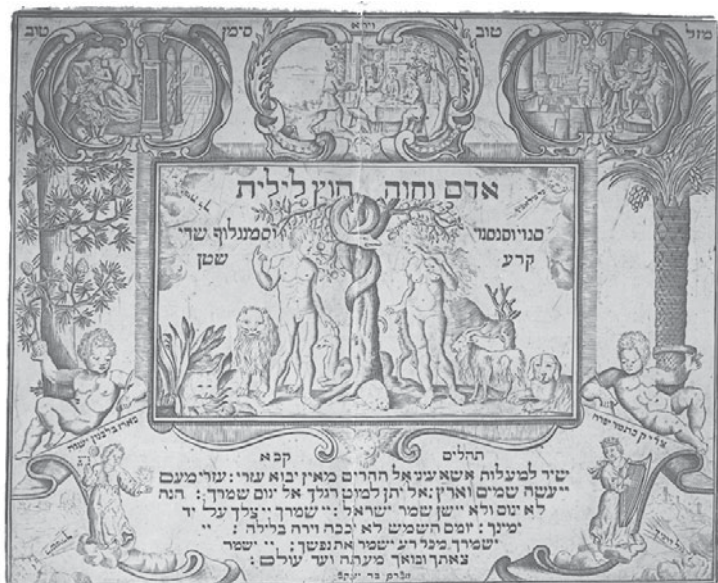 מזל טוב וירא סימן טוב
אדם וחוה חוץ לילית
סנוי וסנסנוי וסמנגלוף שרי
קרע שטן
צדיק כתמר יפרח
כארז בלבנון ישגה
תהלים קכא
שיר למעלות אשא עיני אל ההרים מאין יבוא עזרי : עזרי מעם
יי עשה שמים וארץ : אל יתן למוט רגלך אל ינום שמרך : הנה
לא ינום ולא יישן שמר ישראל : יי שמרך יי צלך על יד
ימינך : יומם השמש לא יככה וירח בלילה : יי
ישמרך מכל רע ישמר את נפשך : יי ישמר
צאתך ובואך מעתה ועד עולם :
אברם בר יעקב